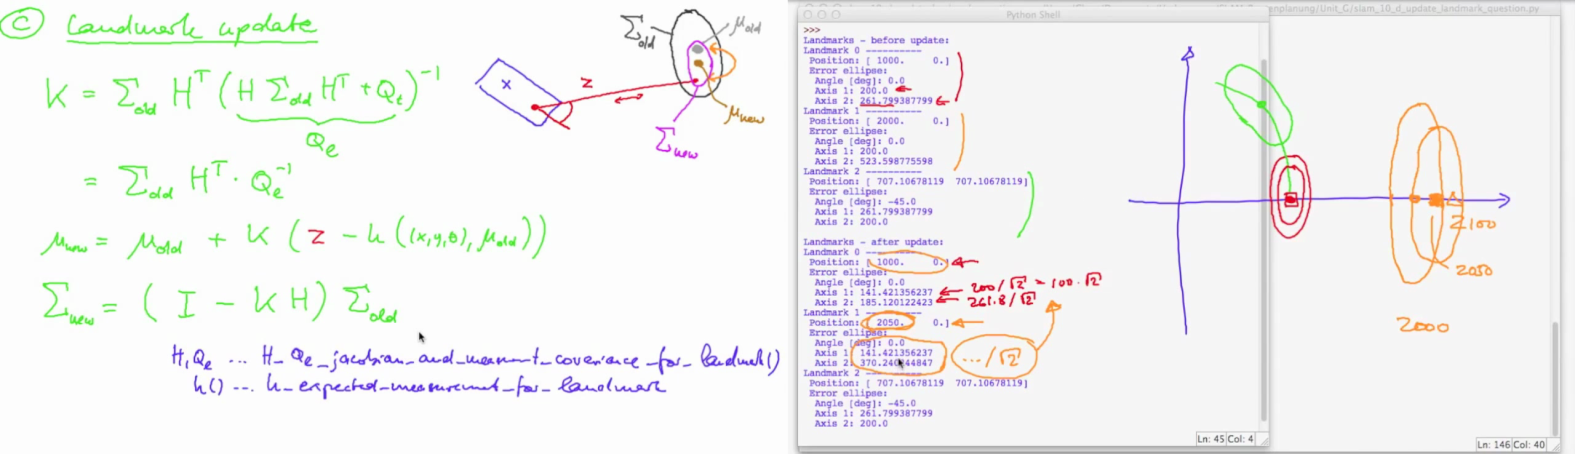 Ⓒ Landmark update
K = Σold Hᵀ (H Σold Hᵀ + Qt)⁻¹
Qe
= Σold Hᵀ · Qe⁻¹
μnew = μold + K (z − h((x,y,θ), μold))
Σnew = (I − K H) Σold
H, Qe ... H_Qe_jacobian_and_measment_covariance_for_landmark()
h() ... h_expected_measurement_for_landmark
Σold
μold
x
z
μnew
Σnew
Python Shell
enplanung/Unit_C/slam_10_d_update_landmark_question.py
>>>
Landmarks - before update:
Landmark 0 ----------
Position: [ 1000. 0.]
Error ellipse:
Angle [deg]: 0.0
Axis 1: 200.0
Axis 2: 261.799387799
Landmark 1 ----------
Position: [ 2000. 0.]
Error ellipse:
Angle [deg]: 0.0
Axis 1: 200.0
Axis 2: 523.598775598
Landmark 2 ----------
Position: [ 707.10678119 707.10678119]
Error ellipse:
Angle [deg]: -45.0
Axis 1: 261.799387799
Axis 2: 200.0
Landmarks - after update:
Landmark 0 ----------
Position: [ 1000. 0.]
Error ellipse:
Angle [deg]: 0.0
Axis 1: 141.421356237 200/√2 = 100·√2
Axis 2: 185.120122423 261.8/√2
Landmark 1 ----------
Position: [ 2050. 0.]
Error ellipse:
Angle [deg]: 0.0
Axis 1: 141.421356237
Axis 2: 370.240244847
.../√2
Landmark 2 ----------
Position: [ 707.10678119 707.10678119]
Error ellipse:
Angle [deg]: -45.0
Axis 1: 261.799387799
Axis 2: 200.0
Ln: 45 Col: 4
2100
2050
2000
Ln: 146 Col: 40